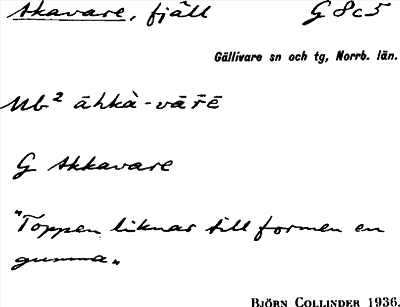 Akavare, fjäll G 8c5
Gällivare sn och tg, Norrb. län.
Nb² āhkà-vārē
G Akkavare
"Toppen liknar till formen en
gumma"
BJÖRN COLLINDER 1936.